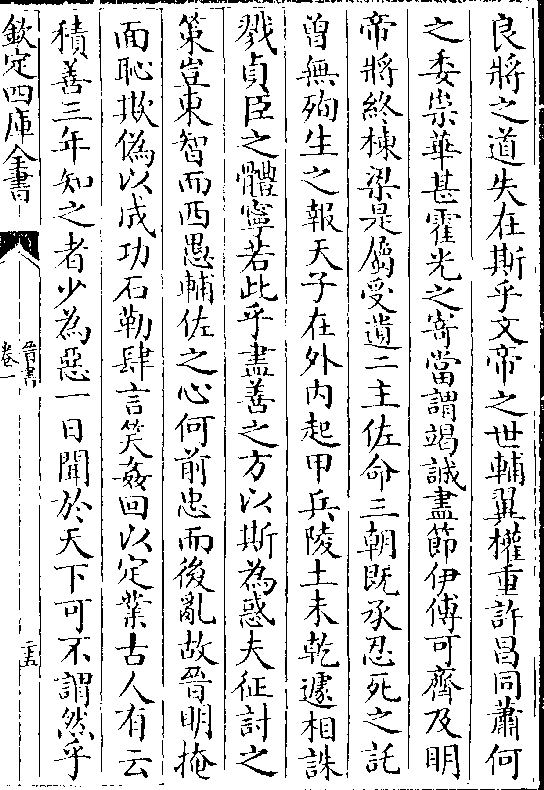 良將之道失在斯乎文帝之世輔翼權重許昌同蕭何
之委崇華甚霍光之寄當謂竭誠盡節伊傅可齊及明
帝將終棟梁是屬受遺二主佐命三朝既承忍死之託
曽無殉生之報天子在外内起甲兵陵土未乾遽相誅
戮貞臣之體寧若此乎盡善之方以斯為惑夫征討之
策豈東智而西愚輔佐之心何前忠而後亂故晉明掩
面恥欺偽以成功石勒肆言笑姦回以定業古人有云
積善三年知之者少為惡一日聞於天下可不謂然乎
欽定四庫全書
晉書
卷一
二五